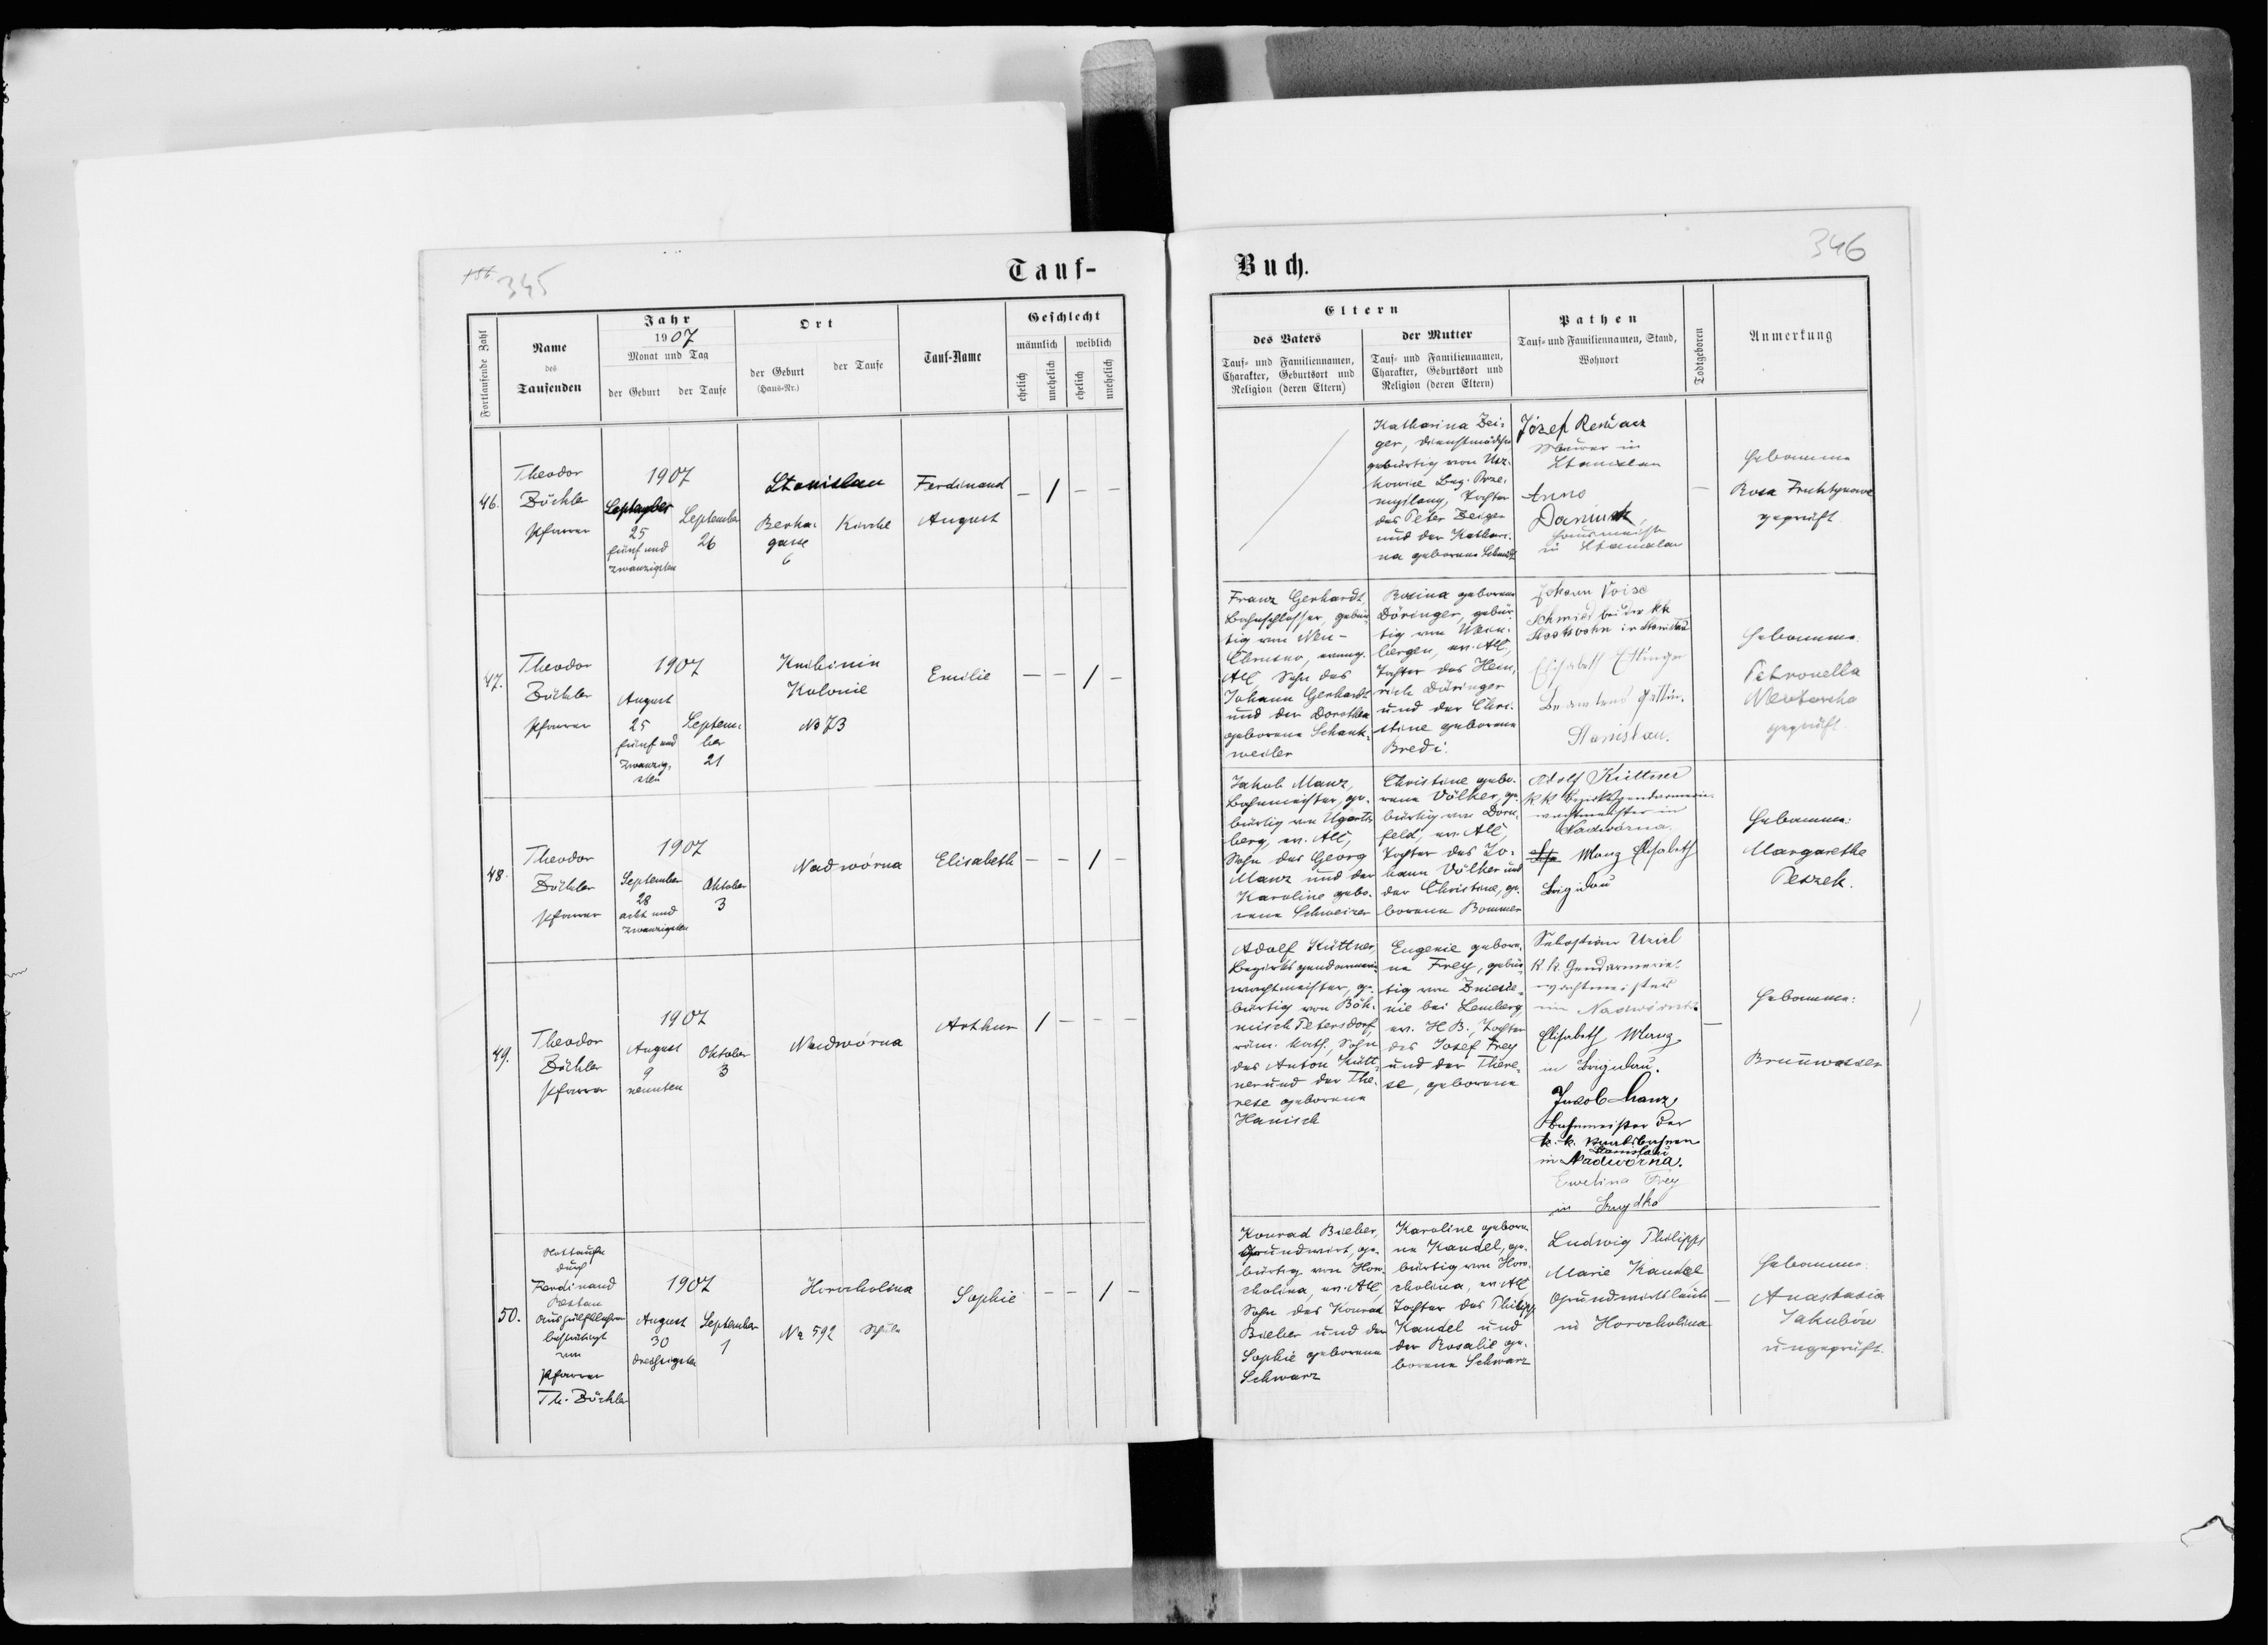 345
Tauf-
Fortlaufende Zahl
Name
des
Taufenden
Jahr
1907
Monat und Tag
der Geburt
der Taufe
Ort
der Geburt
(Haus-Nr.)
der Taufe
Tauf-Name
Geschlecht
männlich
weiblich
ehelich
unehelich
ehelich
unehelich
46.
Theodor
Zöckler
Pfarrer
1907
September
25
fünf und
zwanzigsten
September
26
Stanislau
gasse
6
Kirche
Ferdinand
August
— 1 — —
47.
Theodor
Zöckler
Pfarrer
1907
August
25
fünf und
zwanzig-
sten
Septem-
ber
21
Knihinin
Kolonie
No 73
Emilie
— — 1 —
48.
Theodor
Zöckler
Pfarrer
1907
September
28
acht und
zwanzigsten
Oktober
3
Nadwórna
Elisabeth
— — 1 —
49.
Theodor
Zöckler
Pfarrer
1907
August
9
neunten
Oktober
3
Nadwórna
Arthur
1 — — —
50.
Nottaufe
durch
Ferdinand
Aushülfslehrer
bestätigt
von
Pfarrer
Th. Zöckler
1907
August
30
dreißigsten
September
1
Horocholina
No 592
Schule
Sophie
— — 1 —
346
Buch.
Eltern
des Vaters
Tauf- und Familiennamen,
Charakter, Geburtsort und
Religion (deren Eltern)
der Mutter
Tauf- und Familiennamen,
Charakter, Geburtsort und
Religion (deren Eltern)
Pathen
Tauf- und Familiennamen, Stand,
Wohnort
Todtgeboren
Anmerkung
Katharina Zei-
ger, Dienstmädchen
gebürtig von Usz-
kowice Bez. Prze-
myslany, Tochter
des Peter Zeiger
und der Kathari-
na geborene Schmidt
Józef
Maurer in
Stanislau
Anna
in Stanislau
—
Hebamme
Rosa
geprüft
Franz Gerhardt,
Bahnschlosser, gebür-
tig von Neu-
Chrusno, evang.
AC, Sohn des
Johann Gerhardt
und der Dorothea
geborene Schank-
weiler
Rosina geborene
Döringer, gebür-
tig von Ugar-
bergen, ev. AC,
Tochter des Hein-
rich Döringer
und der Chri-
stine geborene
Bredi.
Johann
Schmied bei der kk
Staatsbahn in Stanislau
Elisabeth
Beamtens Gattin.
Stanislau.
Hebamme:
Petronella
geprüft.
Jakob Manz,
Bahnmeister, ge-
bürtig von Ugarts-
berg, ev. AC,
Sohn des Georg
Manz und der
Karoline gebo-
rene Schweizer
Christine gebo-
rene Völker, ge-
bürtig von Dorn-
feld, ev. AC,
Tochter des Jo-
hann Völker und
der Christine, ge-
borene Bommer
Adolf Küttner
k k Bezirksgendarmerie-
wachtmeister in
Nadwórna.
Manz Elisabeth
Brigidau
Hebamme:
Margarethe
Peszek.
Adolf Küttner,
Bezirksgendarmerie-
wachtmeister, ge-
bürtig von Böh-
misch Petersdorf,
röm. kath, Sohn
des Anton Kütt-
ner und der The-
rese geborene
Hanisch
Eugenie gebore-
ne Frey, gebür-
tig von Zniesie-
nie bei Lemberg
ev. HB., Tochter
des Josef Frey
und der There-
se, geborene
Sebastian Uziel
k. k. Gendarmerie-
wachtmeister
in Nadwórna
Elisabeth Manz
in Brigidau.
Jacob Manz,
Bahnmeister der
k. k. Staatsbahnen
Stanislau
in Nadwórna.
Ewelina Frey
in
—
Hebamme:
Brunwasser
Konrad Bieber,
Grundwirt, ge-
bürtig von Horo-
cholina, ev. AC,
Sohn des Konrad
Bieber und der
Sophie geborene
Schwarz
Karoline gebore-
ne Kandel, ge-
bürtig von Horo-
cholina, ev. AC
Tochter des Philipp
Kandel und
der Rosalie ge-
borene Schwarz
Ludwig Philipps
Marie Kandel
Grundwirtsleute
in Horocholina
—
Hebamme:
Anastasia
Jakubów
ungeprüft.